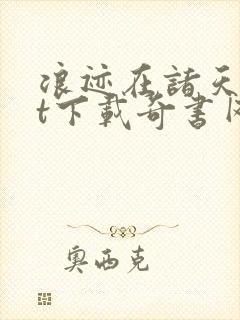 浪迹在諸天
t下載奇書网
奥西克